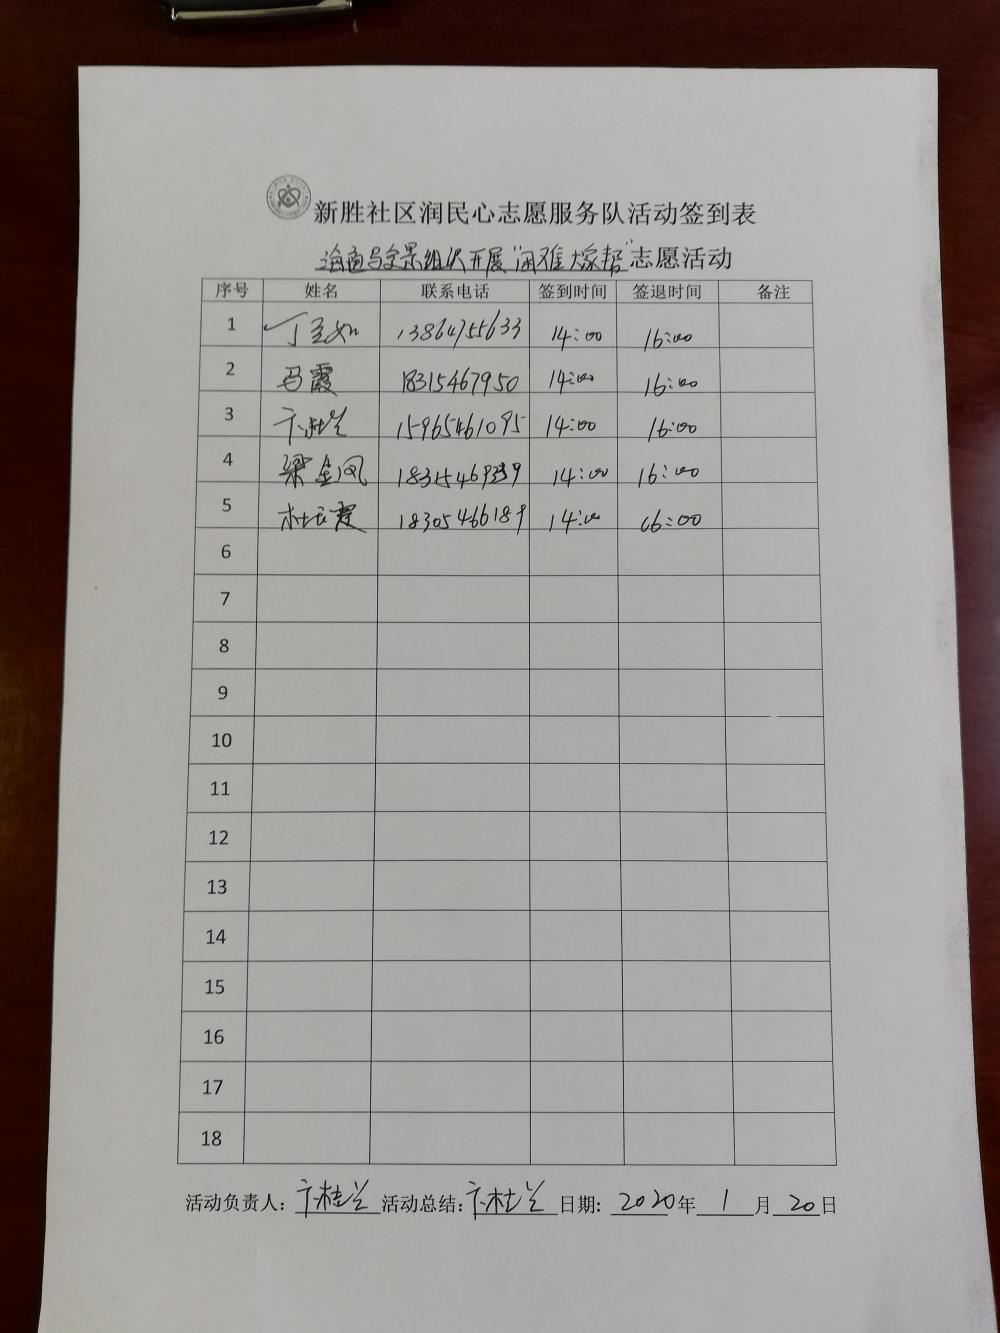 新胜社区润民心志愿服务队活动签到表
组织开展"困难大家帮"志愿活动
序号 姓名 联系电话 签到时间 签退时间 备注
1 丁 13864755633 14:00 16:00
2 马霞 18315467950 14:00 16:00
3 卞桂兰 15965461095 14:00 16:00
4 梁金凤 14:00 16:00
5 杜云霞 18305466189 14:00 16:00
6
7
8
9
10
11
12
13
14
15
16
17
18
活动负责人: 卞桂兰 活动总结: 卞桂兰 日期: 2020年 1月20日